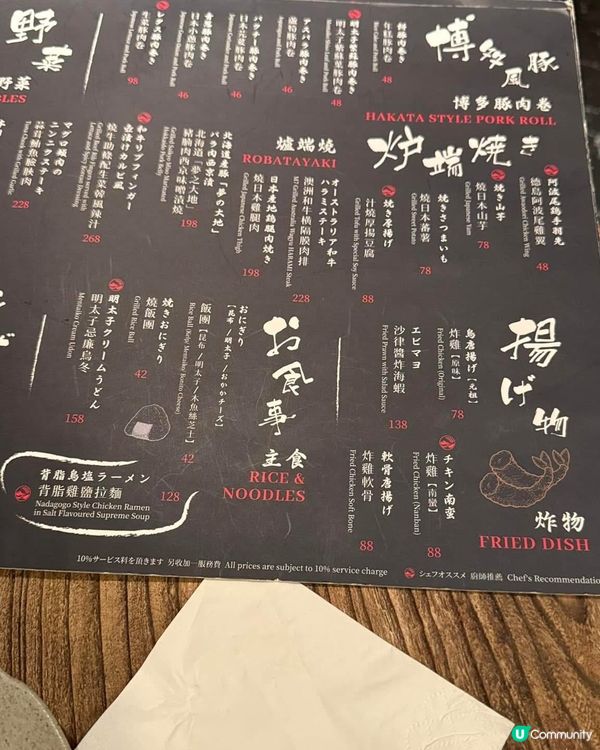 博多風豚
博多豚肉卷
HAKATA STYLE PORK ROLL
餅豚肉巻き
年糕豚肉卷
48
明太子紫蘇豚肉巻き
明太子紫蘇葉豚肉卷
48
アスパラ豚肉巻き
蘆筍豚肉卷
46
パクチー豚肉巻き
日本芫荽豚肉卷
46
日本小蔥豚肉卷
46
レタス豚肉巻き
生菜豚肉卷
98
野菜
野菜
BLES
炉端焼き
爐端燒
ROBATAYAKI
阿波尾鶏手羽先
德島阿波尾雞翼
Grilled Awaodori Chicken Wing
48
焼き山芋
燒日本山芋
Grilled Japanese Yam
78
焼きさつまいも
燒日本蕃薯
Grilled Sweet Potato
78
焼き厚揚げ
汁燒厚揚豆腐
Grilled Tofu with Special Soy Sauce
88
オーストラリア和牛
ハラミステーキ
澳洲和牛橫隔膜肉排
M7 Grilled Australia Wagyu HARAMI Steak
228
日本産地鶏腿肉焼き
燒日本雞腿肉
Grilled Japanese Chicken Thigh
198
北海道産豚「夢の大地」
バラ肉西京漬
北海道「夢之大地」
豬腩肉西京味噌漬燒
198
和牛リブフィンガー
壺漬けカルビ風
燒牛肋條配生菜韓風辣汁
268
マグロ頬肉の
ニンニクステーキ
蒜茸鮪魚腮腩肉
228
揚げ物
炸物
FRIED DISH
鳥唐揚げ【元祖】
炸雞【原味】
Fried Chicken (Original)
78
エビマヨ
沙律醬炸海蝦
Fried Prawn with Salad Sauce
138
チキン南蛮
炸雞【南蠻】
Fried Chicken (Nanban)
88
軟骨唐揚げ
炸雞軟骨
Fried Chicken Soft Bone
88
お食事
主食
RICE &
NOODLES
おにぎり
【昆布/明太子/おかかチーズ】
飯團【昆布/明太子/木魚絲芝士】
42
焼きおにぎり
燒飯團
Grilled Rice Ball
42
明太子クリームうどん
明太子忌廉烏冬
Mentaiko Cream Udon
158
背脂鳥塩ラーメン
背脂雞鹽拉麵
128
Nadagogo Style Chicken Ramen
in Salt Flavoured Supreme Soup
10%サービス料を頂きます 另收加一服務費 All prices are subject to 10% service charge
シェフオススメ 廚師推薦 Chef's Recommendatio
U Community